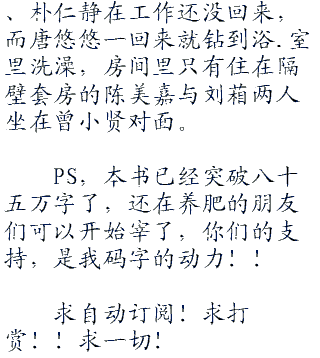 、朴仁静在工作还没回来，
而唐悠悠一回来就钻到浴.室
里洗澡，房间里只有住在隔
壁套房的陈美嘉与刘萷两人
坐在曾小贤对面。
PS，本书已经突破八十
五万字了，还在养肥的朋友
们可以开始宰了，你们的支
持，是我码字的动力！！
求自动订阅！求打
赏！！求一切！